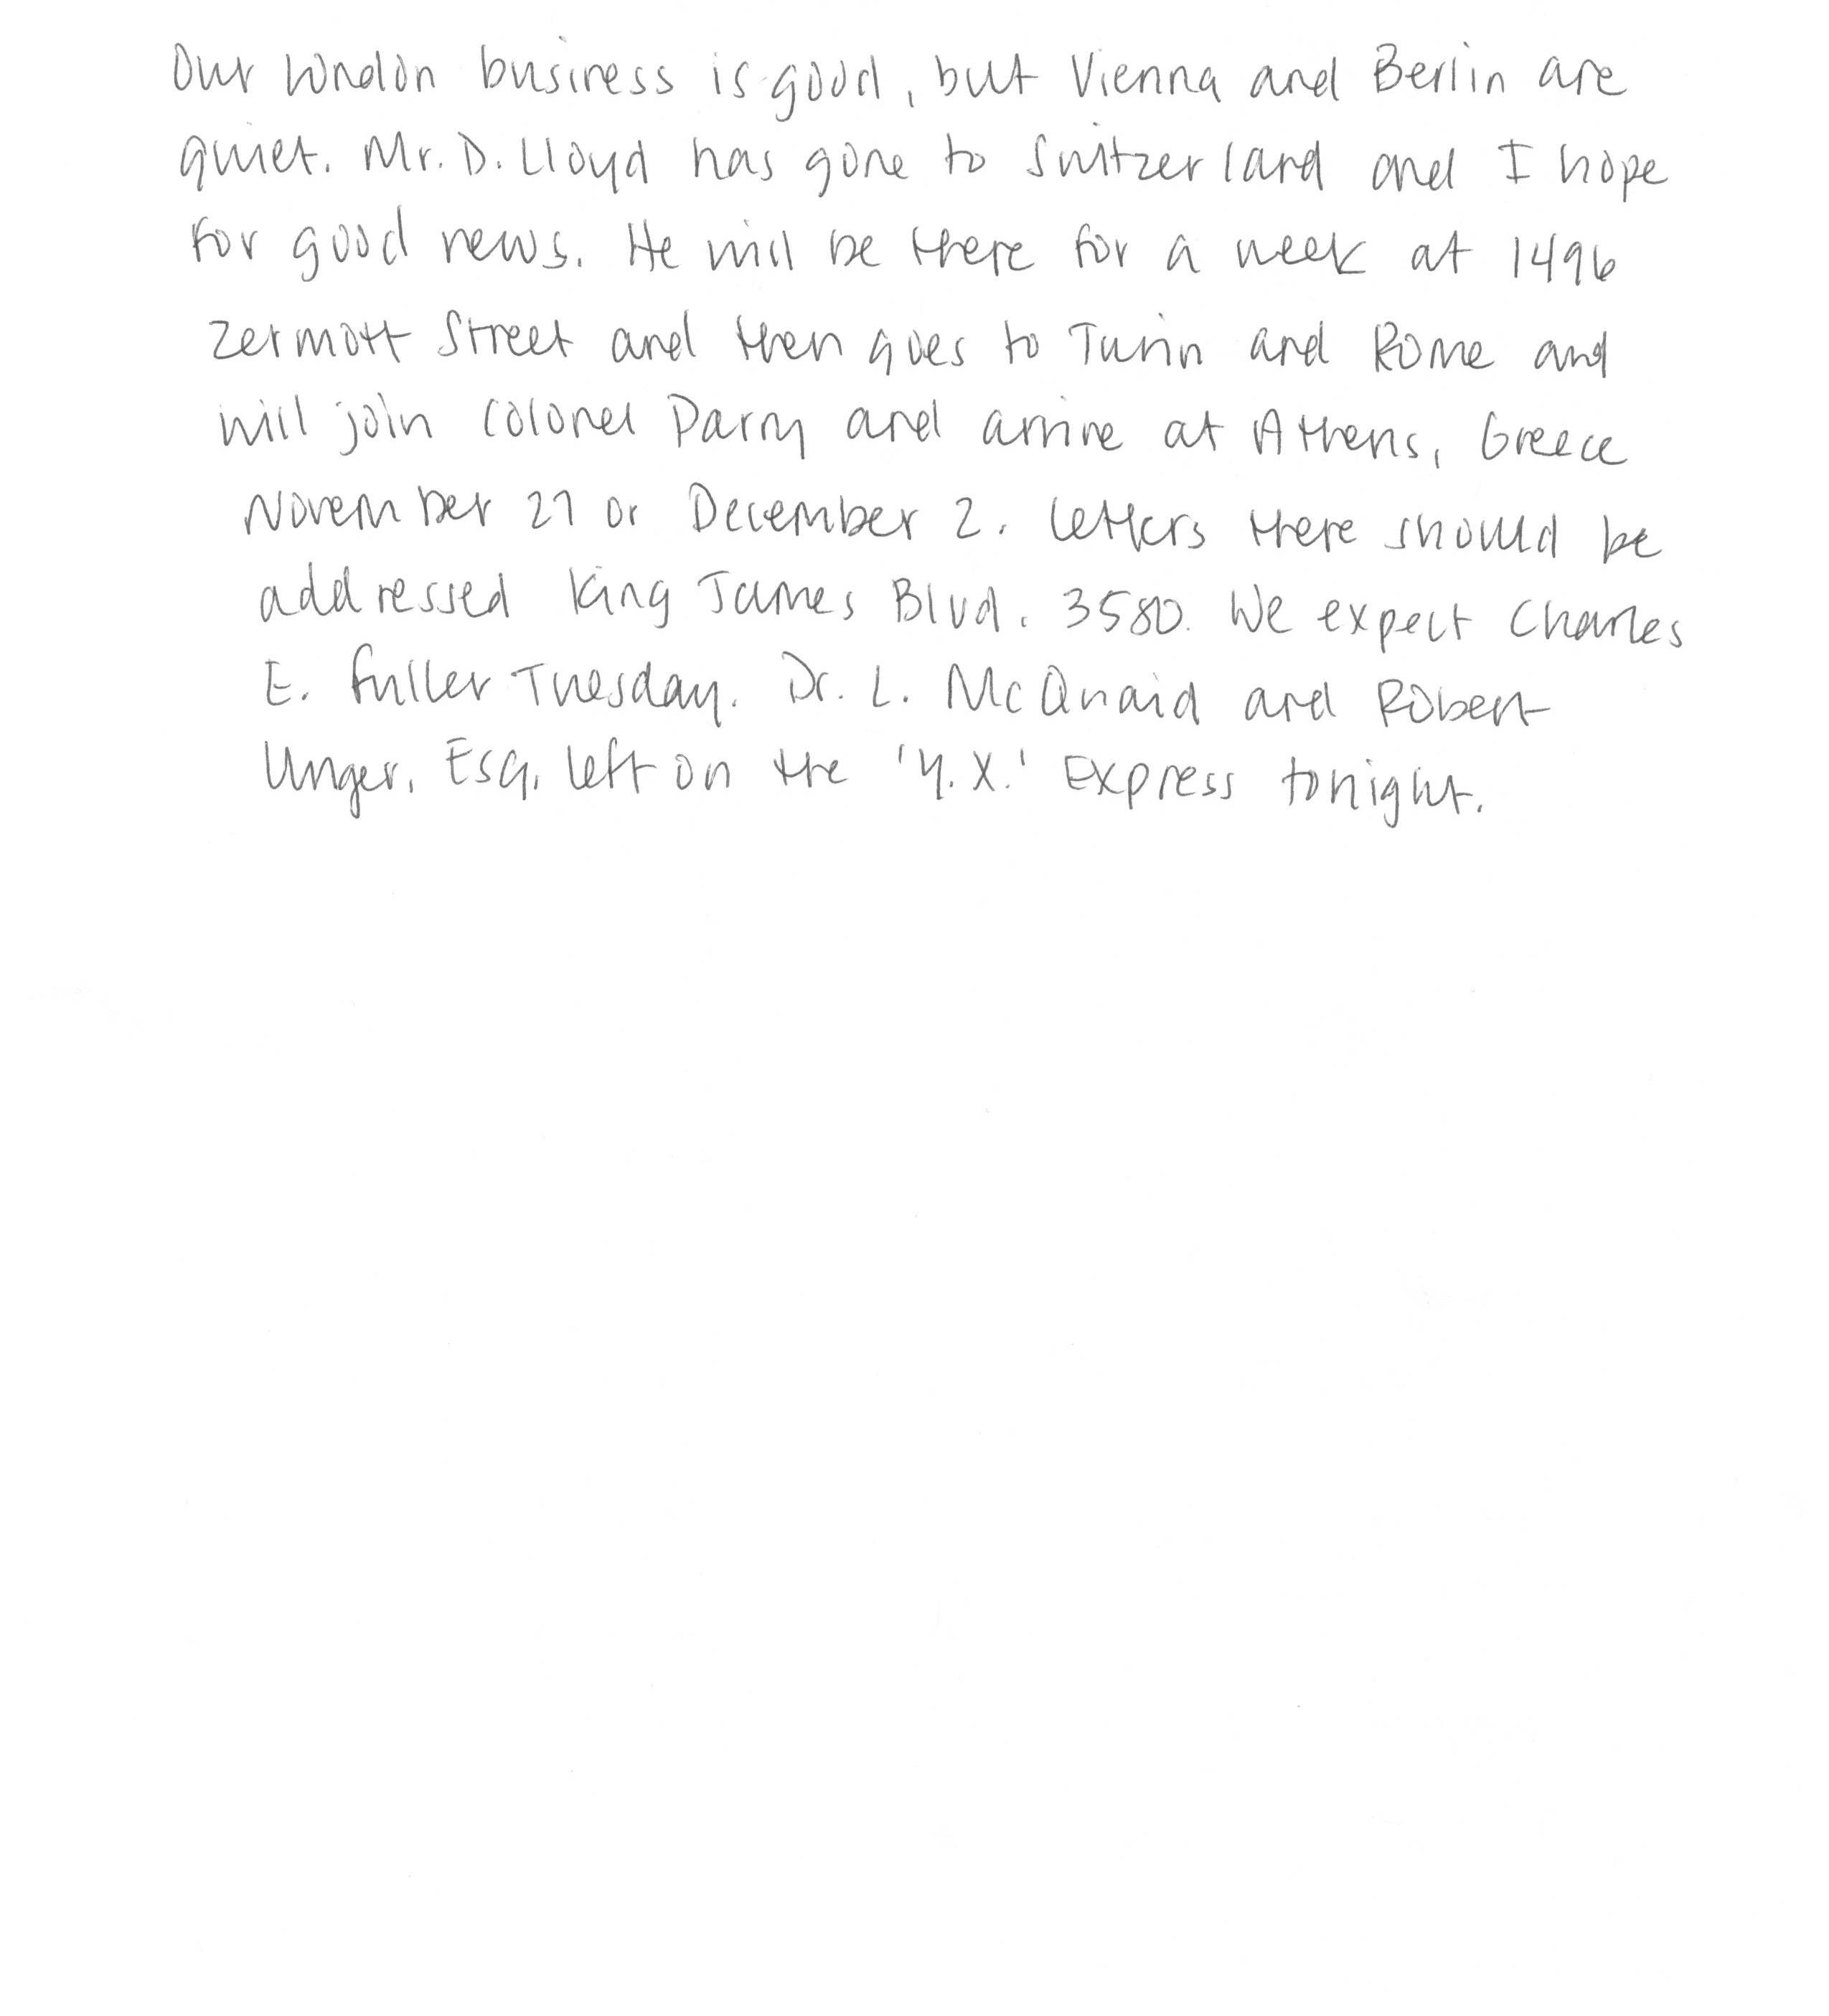 Our London business is good, but Vienna and Berlin are
quiet. Mr. D. Lloyd has gone to Switzerland and I hope
for good news. He will be there for a week at 1496
Zermott Street and then goes to Turin and Rome and
will join Colonel Parry and arrive at Athens, Greece
November 27 or December 2. Letters there should be
addressed King James Blvd. 3580. We expect Charles
E. Fuller Tuesday. Dr. L. McQuaid and Robert
Unger, Esq. left on the 'Y.X.' Express tonight.